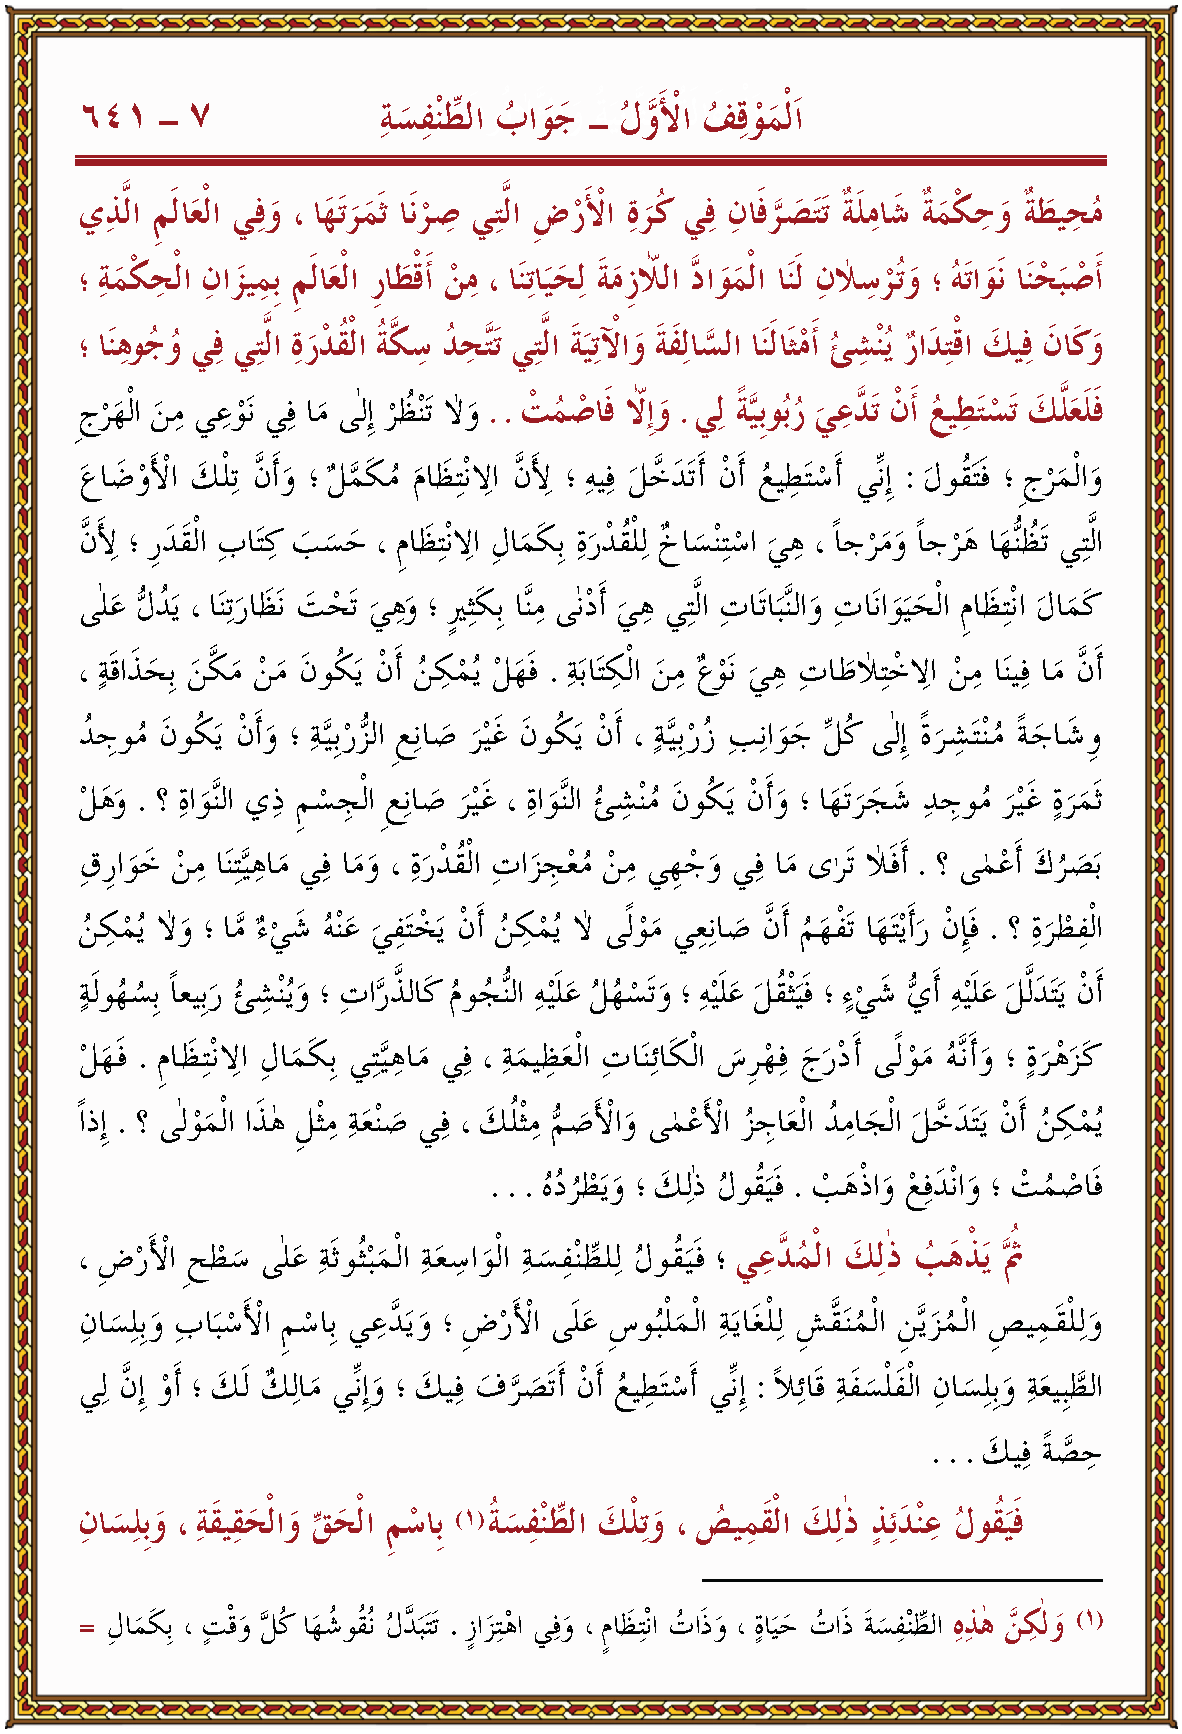 اَلْمَوْقِفُ الْأَوَّلُ ــ جَوَابُ الطِّنْفِسَةِ ٧ ــ ٦٤١
مُحِيطَةٌ وَحِكْمَةٌ شَامِلَةٌ تَتَصَرَّفَانِ فِي كُرَةِ الْأَرْضِ الَّتِي صِرْنَا ثَمَرَتَهَا ، وَفِي الْعَالَمِ الَّذِي
أَصْبَحْنَا نَوَاتَهُ ؛ وَتُرْسِلَانِ لَنَا الْمَوَادَّ اللَّازِمَةَ لِحَيَاتِنَا ، مِنْ أَقْطَارِ الْعَالَمِ بِمِيزَانِ الْحِكْمَةِ ؛
وَكَانَ فِيكَ اقْتِدَارٌ يُنْشِئُ أَمْثَالَنَا السَّالِفَةَ وَالْآتِيَةَ الَّتِي تَتَّحِدُ سِكَّةُ الْقُدْرَةِ الَّتِي فِي وُجُوهِنَا ؛
فَلَعَلَّكَ تَسْتَطِيعُ أَنْ تَدَّعِيَ رُبُوبِيَّةً لِي . وَإِلَّا فَاصْمُتْ . . وَلَا تَنْظُرْ إِلٰى مَا فِي نَوْعِي مِنَ الْهَرْجِ
وَالْمَرْجِ ؛ فَتَقُولَ : إِنِّي أَسْتَطِيعُ أَنْ أَتَدَخَّلَ فِيهِ ؛ لِأَنَّ الِانْتِظَامَ مُكَمَّلٌ ؛ وَأَنَّ تِلْكَ الْأَوْضَاعَ
الَّتِي تَظُنُّهَا هَرْجاً وَمَرْجاً ، هِيَ اسْتِنْسَاخٌ لِلْقُدْرَةِ بِكَمَالِ الِانْتِظَامِ ، حَسَبَ كِتَابِ الْقَدَرِ ؛ لِأَنَّ
كَمَالَ انْتِظَامِ الْحَيَوَانَاتِ وَالنَّبَاتَاتِ الَّتِي هِيَ أَدْنٰى مِنَّا بِكَثِيرٍ ؛ وَهِيَ تَحْتَ نَظَارَتِنَا ، يَدُلُّ عَلٰى
أَنَّ مَا فِينَا مِنْ الِاخْتِلَاطَاتِ هِيَ نَوْعٌ مِنَ الْكِتَابَةِ . فَهَلْ يُمْكِنُ أَنْ يَكُونَ مَنْ مَكَّنَ بِحَذَاقَةٍ ،
وِشَاجَةً مُنْتَشِرَةً إِلٰى كُلِّ جَوَانِبِ زُرْبِيَّةٍ ، أَنْ يَكُونَ غَيْرَ صَانِعِ الزُّرْبِيَّةِ ؛ وَأَنْ يَكُونَ مُوجِدُ
ثَمَرَةٍ غَيْرَ مُوجِدِ شَجَرَتِهَا ؛ وَأَنْ يَكُونَ مُنْشِئُ النَّوَاةِ ، غَيْرَ صَانِعِ الْجِسْمِ ذِي النَّوَاةِ ؟ . وَهَلْ
بَصَرُكَ أَعْمٰى ؟ . أَفَلَا تَرٰى مَا فِي وَجْهِي مِنْ مُعْجِزَاتِ الْقُدْرَةِ ، وَمَا فِي مَاهِيَّتِنَا مِنْ خَوَارِقِ
الْفِطْرَةِ ؟ . فَإِنْ رَأَيْتَهَا تَفْهَمُ أَنَّ صَانِعِي مَوْلًى لَا يُمْكِنُ أَنْ يَخْتَفِيَ عَنْهُ شَيْءٌ مَّا ؛ وَلَا يُمْكِنُ
أَنْ يَتَدَلَّلَ عَلَيْهِ أَيُّ شَيْءٍ ؛ فَيَثْقُلَ عَلَيْهِ ؛ وَتَسْهُلُ عَلَيْهِ النُّجُومُ كَالذَّرَّاتِ ؛ وَيُنْشِئُ رَبِيعاً بِسُهُولَةِ
كَزَهْرَةٍ ؛ وَأَنَّهُ مَوْلًى أَدْرَجَ فِهْرِسَ الْكَائِنَاتِ الْعَظِيمَةِ ، فِي مَاهِيَّتِي بِكَمَالِ الِانْتِظَامِ . فَهَلْ
يُمْكِنُ أَنْ يَتَدَخَّلَ الْجَامِدُ الْعَاجِزُ الْأَعْمٰى وَالْأَصَمُّ مِثْلُكَ ، فِي صَنْعَةِ مِثْلِ هٰذَا الْمَوْلٰى ؟ . إِذاً
فَاصْمُتْ ؛ وَانْدَفِعْ وَاذْهَبْ . فَيَقُولُ ذٰلِكَ ؛ وَيَطْرُدُهُ . . .
ثُمَّ يَذْهَبُ ذٰلِكَ الْمُدَّعِي ؛ فَيَقُولُ لِلطِّنْفِسَةِ الْوَاسِعَةِ الْمَبْثُوثَةِ عَلٰى سَطْحِ الْأَرْضِ ،
وَلِلْقَمِيصِ الْمُزَيَّنِ الْمُنَقَّشِ لِلْغَايَةِ الْمَلْبُوسِ عَلَى الْأَرْضِ ؛ وَيَدَّعِي بِاسْمِ الْأَسْبَابِ وَبِلِسَانِ
الطَّبِيعَةِ وَبِلِسَانِ الْفَلْسَفَةِ قَائِلاً : إِنِّي أَسْتَطِيعُ أَنْ أَتَصَرَّفَ فِيكَ ؛ وَإِنِّي مَالِكٌ لَكَ ؛ أَوْ إِنَّ لِي
حِصَّةً فِيكَ . . .
فَيَقُولُ عِنْدَئِذٍ ذٰلِكَ الْقَمِيصُ ، وَتِلْكَ الطِّنْفِسَةُ(١) بِاسْمِ الْحَقِّ وَالْحَقِيقَةِ ، وَبِلِسَانِ
(١) وَلٰكِنَّ هٰذِهِ الطِّنْفِسَةَ ذَاتُ حَيَاةٍ ، وَذَاتُ انْتِظَامٍ ، وَفِي اهْتِزَازٍ . تَتَبَدَّلُ نُقُوشُهَا كُلَّ وَقْتٍ ، بِكَمَالِ =